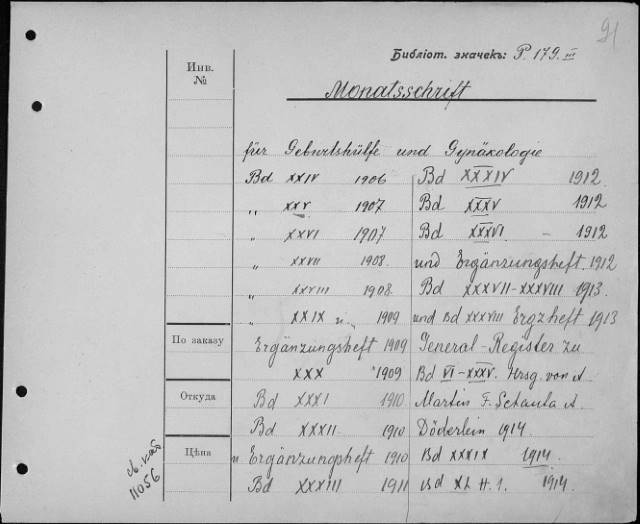 91
Библіот. значекъ: P. 179. III
Инв.
№
Monatsschrift
für Geburtshülfe und Gynäkologie
Bd XXIV 1906
„ XXV 1907
„ XXVI 1907
„ XXVII 1908
„ XXVIII 1908
„ XXIX u. „ 1909
Ergänzungsheft 1909
XXX 1909
Bd XXXI 1910
Bd XXXII 1910
u Ergänzungsheft 1910
Bd XXXIII 1911
Bd XXXIV 1912
Bd XXXV 1912
Bd XXXVI. - 1912
und Ergänzungsheft. 1912
Bd XXXVII-XXXVIII 1913.
und Bd XXXVIII Ergzheft 1913
General-Register zu
Bd VI-XXXV. Hrsg. von A
Martin F. Schauta A.
Döderlein 1914.
Bd XXXIX 1914.
Bd XL H. 1. 1914.
По заказу
Откуда
Цѣна
11056